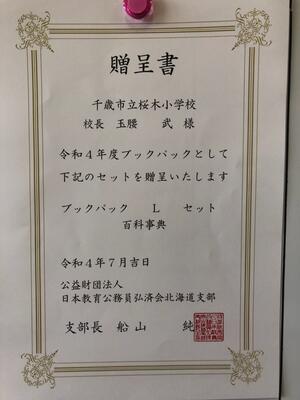 贈呈書
千歳市立桜木小学校
校長 玉腰 武 様
令和4年度ブックパックとして
下記のセットを贈呈いたします
ブックパック L セット
百科事典
令和4年7月吉日
公益財団法人
日本教育公務員弘済会北海道支部
支部長 船山 純